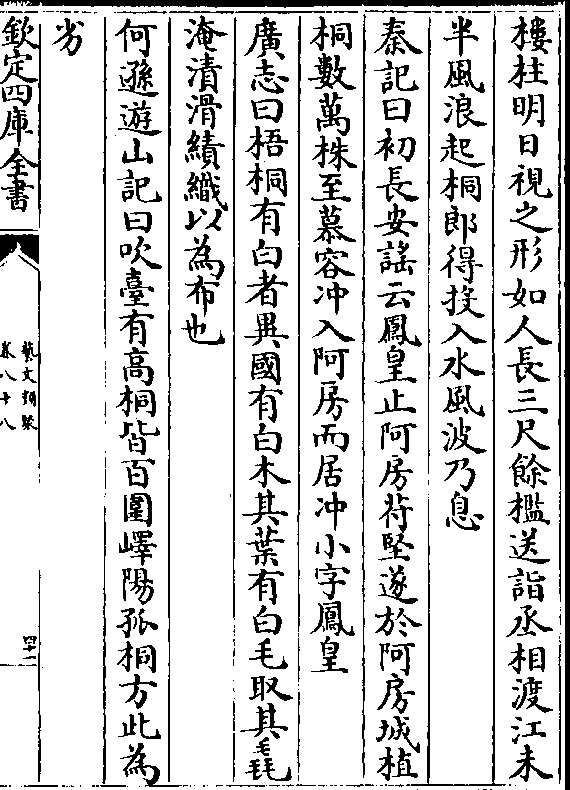 樓柱明日視之形如人長三尺餘檻送詣丞相渡江未
半風浪起桐郎得投入水風波乃息
秦記曰初長安謠云鳳皇止阿房苻堅遂於阿房城植
桐數萬株至慕容冲入阿房而居冲小字鳳皇
廣志曰梧桐有白者異國有白木其葉有白毛取其毳
淹漬滑績織以為布也
何遜遊山記曰吹臺有高桐皆百圍嶧陽孤桐方此為
劣
欽定四庫全書
藝文類聚
卷八十八